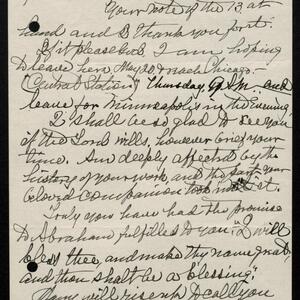 Your note of the 13 at
hand and I thank you for it.
If it please God I am hoping
to leave here May 20 reach Chicago-
(Central Station) Thursday 9 A.M. and
leave for Minneapolis in the evening
I shall be so glad to see you
if the Lord wills, however brief your
time. Am deeply affected by the
history of your work, and the part your
beloved Companion took in it.
Truly you have had the promise
to Abraham fulfilled to you. "I will
bless thee, and make thy name great,
and thou shalt be a blessing"
Many will rise up to call you